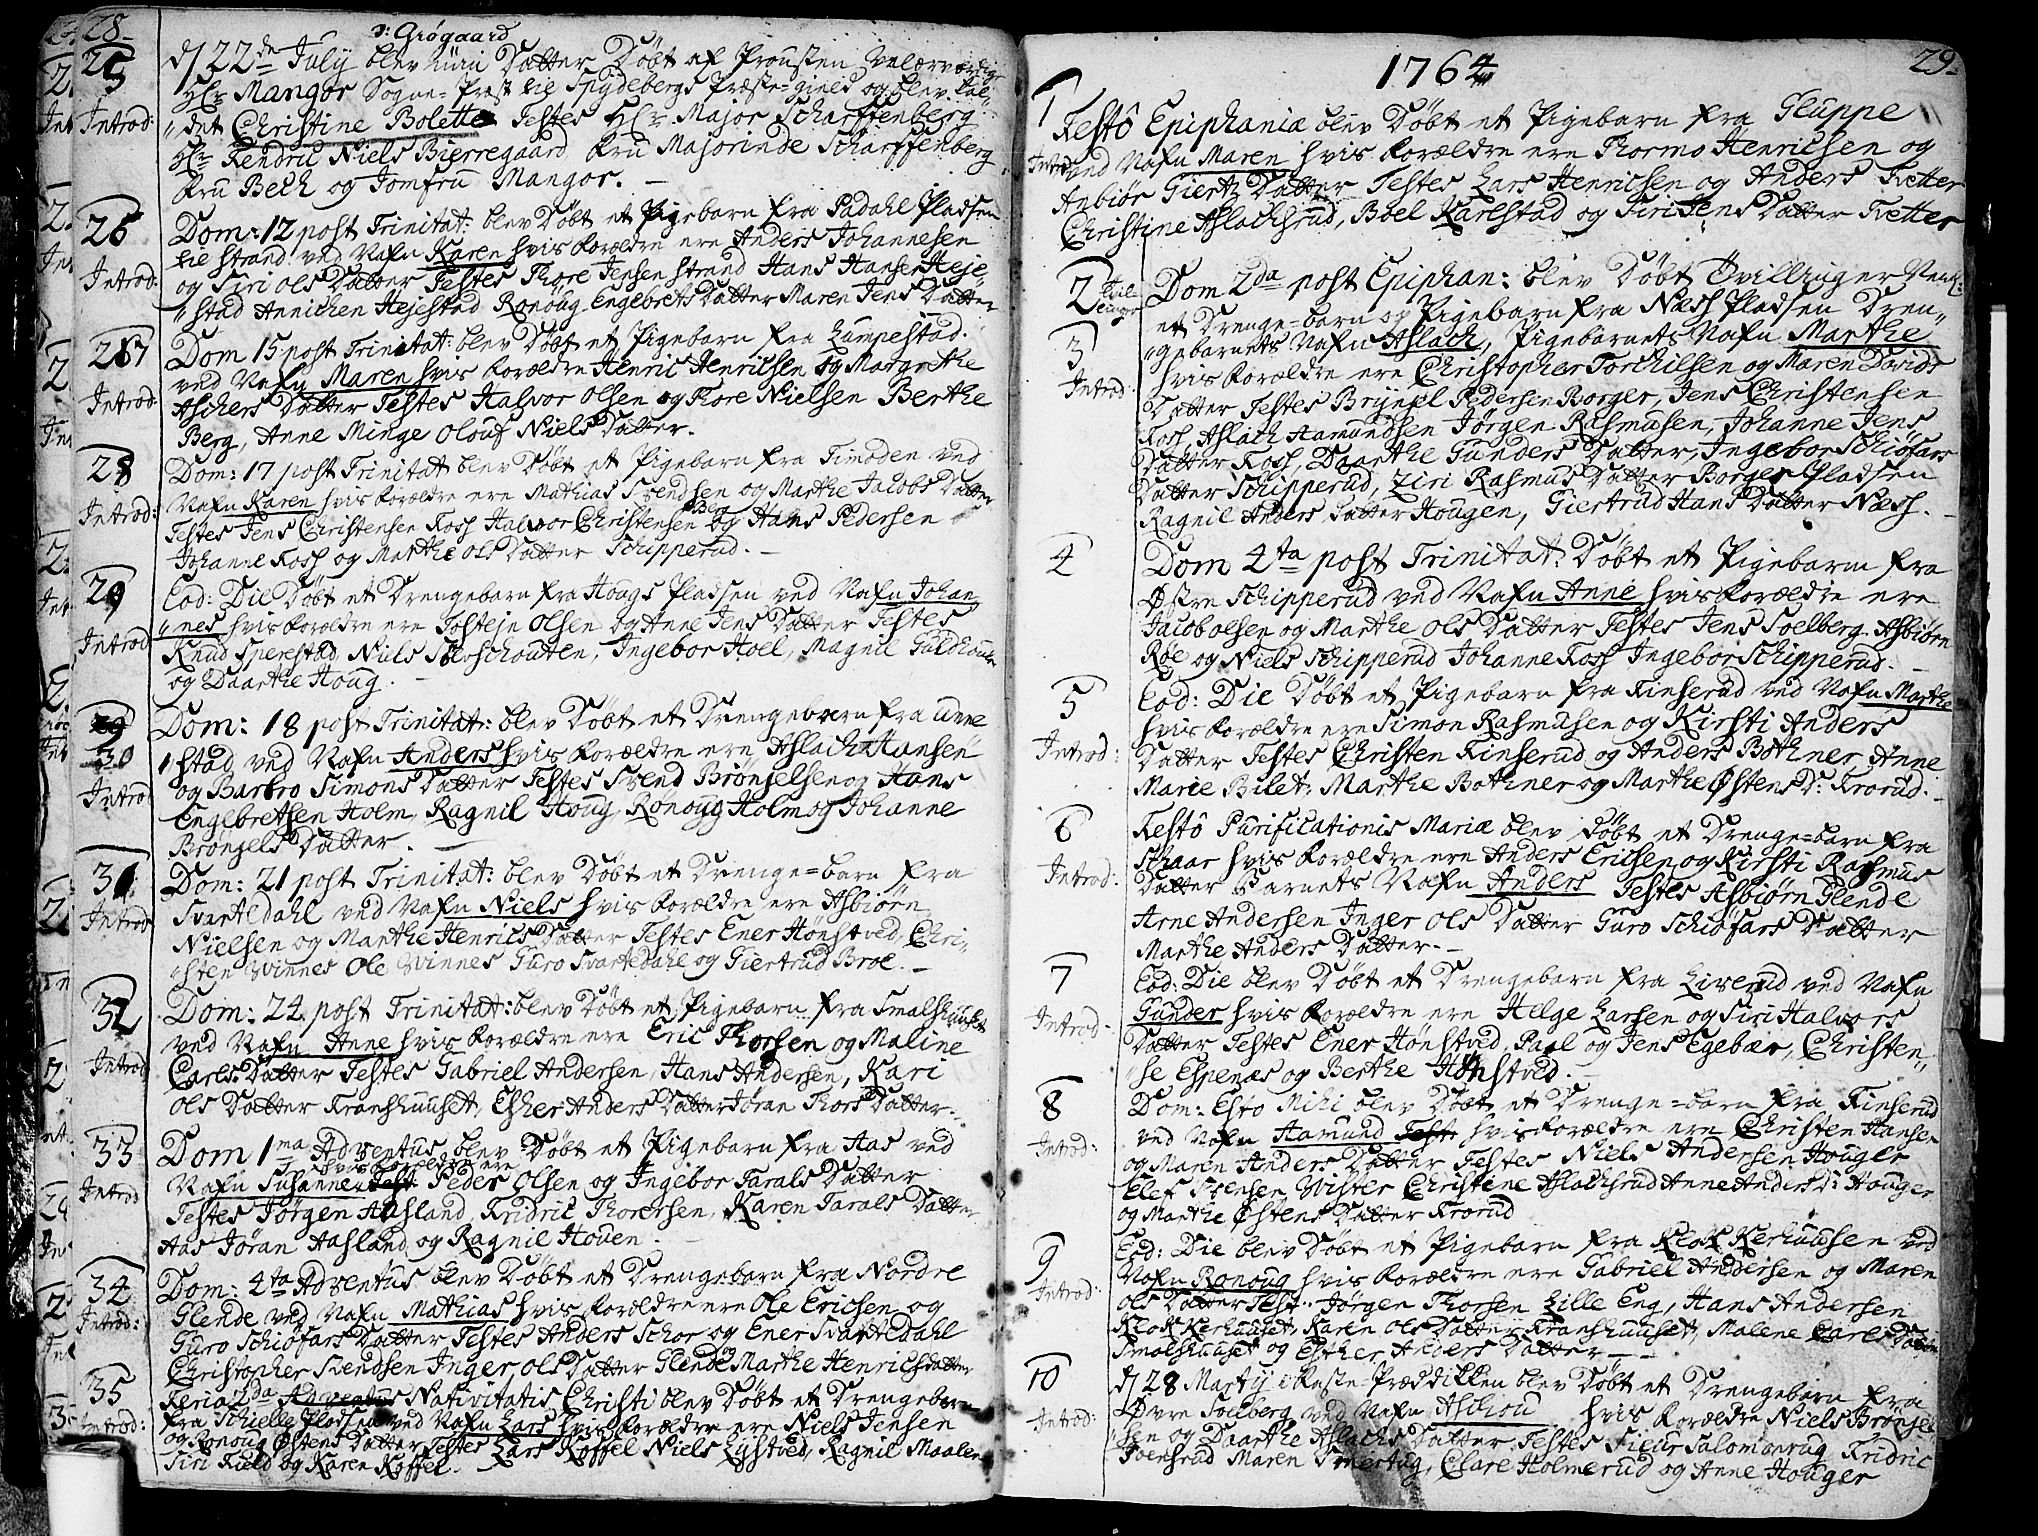 28
ɔ: Grögaard
25 d/ 22de July blev min Datter Döbt af Prousten Velærværdige
Introd: Hr Mangor Sogne-Præst til Spydebergs Præste-gield og blev kal-
det Christine Bolette Testes Hr Major Scharffenberg
Hr Niels Bierregaard Fru Majorinde Scharffenberg
Fru Bech og Jomfru Mangor.
26 Dom: 12 post Trinitat: blev Döbt et Pigebarn fra Padahl Pladsen
til Strand ved Nafn Karen hvis Forældre ere Anders Johannesen
Introd: og Siri Ols Datter Testes Thore Jensen Strand Hans Hansen Heje-
stad Annichen Hejestad Ronoug Engebrets Datter Maren Jens Datter
27 Dom 15 post Trinitat: blev Döbt et Pigebarn fra Lumpestad.
ved Nafn Maren hvis Forældre Henric Henricsen og Margrethe
Introd: Aschers Datter Testes Halvor Olsen og Thore Nielsen Berthe
Berg, Anne Minge Olouf Niels Datter.
28 Dom: 17 post Trinitat blev Döbt et Pigebarn fra Timoden ved
Nafn Karen hvis Forældre ere Mathias Svendsen og Marthe Jacobs Datter
Introd: Testes Jens Christensen Foss Halvor Christensen Berg og Hans Pedersen
Johanne Foss og Marthe Ols Datter Schipperud.
29 Eod: Die Döbt et Drengebarn fra Hougs Pladsen ved Nafn Johan
nes hvis Forældre ere Tostejn Olsen og Anne Jens Datter Testes
Introd Knud Sperestad Niels Ingebor Hoel, Magnil
og Daarthe Houg.
30 Dom: 18 post Trinitat: blev Döbt et Drengebarn fra Unne
stad ved Nafn Anders hvis Forældre ere Aslach Hansen
og Barbro Simons Datter Testes Svend Brönjelsen og Hans
Introd Engebretsen Holm, Ragnil Houg, Ronoug Holm og Johanne
Brönjels Datter.
31 Dom: 21 post Trinitat: blev Döbt et Drenge=barn fra
Svartedahl ved Nafn Niels hvis Forældre ere Asbiörn
Introd Nielsen og Marthe Henrics Datter Testes Ener Hönstved, Chri-
sten Winnes Ole Winnes Guro Svartedahl og Giertrud Broe.
32 Dom: 24 post Trinitat: blev Döbt et Pigebarn fra Smalshuuset
ved Nafn Anne hvis Forældre ere Eric Thorsen og Maline
Introd Carls Datter Testes Gabriel Andersen, Hans Andersen, Kari
Ols Datter Franshuuset, Esther Anders Datter Jöran Thors Datter.
33 Dom 1ma Adventus blev Döbt et Pigebarn fra Aas ved
hvis Forældre ere
Introd Nafn Susanne Peder Olsen og Ingebor Tarals Datter
Testes Jörgen Aasland, Fridric Thorersen, Karen Tarals Datter
Aas Jöran Aasland og Ragnil Houen.
34 Dom: 4ta Adventus blev Döbt et Drengebarn fra Nordre
Introd: Glende ved Nafn Mathias hvis Forældre ere Ole Ericsen og
Guro Schiöfars Datter Testes Anders Schor og Ener Svartedahl
Christopher Svendsen Inger Ols Datter Glende Marthe Henricsdatter
35 Feria 2da Adventus Nativitatis Christi blev Döbt et Drengebarn
Introd: fra Schielle Pladsen ved Nafn Lars hvis Forældre ere Niels Jensen
og Ronoug Östens Datter Testes Lars Koffel Niels Lystved, Ragnil Maalen
Siri Field og Karen Koffel.
1764
29
1 Festô Epiphaniæ blev Döbt et Pigebarn fra Gluppe
Introd ved Nafn Maren hvis Forældre ere Thormo Henricsen og
Anbiör Giertz Datter Testes Lars Henricsen og Anders Fretter
Christine Aslachsrud, Boel Karlstad og Siri Jens Datter Fretter
2 Tvillinger Dom 2da post Epiphan: blev Döbt Tvillinger
et Drenge=barn og Pigebarn fra Næss Pladsen Dren-
3 gebarnets Nafn Aslach, Pigebarnets Nafn Marthe
Introd: hvis Forældre ere Christopher Torchilsen og Maren Davids
Datter Testes Brynjel Pedersen Borger, Jens Christensen
Foss, Aslach Aamundsen Jörgen Rasmusen, Johanne Jens
Datter Foss, Daarthe Gunders Datter, Ingebor Schiöfars
Datter Schipperud, Ziri Rasmus Datter Borger Pladsen
Ragnil Anders Datter Hougen, Giertrud Hans Datter Næss.
4 Dom 4ta post Trinitat: Döbt et Pigebarn fra
Östre Schipperud ved Nafn Anne hvis Forældre ere
Jacob Olsen og Marthe Ols Datter Testes Jens Soelberg Asbiörn
Röe og Niels Schipperud Johanne Foss Ingebor Schipperud.
5 Eod: Die Döbt et Pigebarn fra Finserud ved Nafn Marthe
hvis Forældre ere Simon Rasmusen og Kirsti Anders
Introd: Datter Testes Christen Finserud og Anders Bothner Anne
Marie Bilet, Marthe Bothner og Marthe Östens D: Frorud.
6 Festô Purificationis Mariæ blev Döbt et Drenge=barn fra
Schaar hvis Forældre ere Anders Ericsen og Kirsti Rasmus
Introd: Datter Barnets Nafn Anders Testes Asbiörn Glende
Arne Andersen Inger Ols Datter Guro Schiöfars Datter
Marthe Anders Datter.
7 Eod: Die blev Döbt et Drengebarn fra Liverud ved Nafn
Gunder hvis Forældre ere Helge Larsen og Siri Halvors
Introd: Datter Testes Ener Hönstved, Paal og Jens Egebær, Christen-
se Espenæs og Berthe Hönstved.
8 Dom: Esto Mihi blev Döbt et Drenge=barn fra Finserud
Introd: ved Nafn Aamund Test: hvis Forældre ere Christen Hansen
og Maren Anders Datter Testes Niels Andersen Houger
Elef Svensen Wister Christine Aslachsrud Anne Anders D: Houger
og Marthe Östens Datter Frorud
9 Eod: Die blev Döbt et Pigebarn fra Klokkerhuusen ved
Introd: Nafn Ronoug hvis Forældre ere Gabriel Andersen og Maren
Ols Datter Test: Jörgen Thorsen Lille Eng, Hans Andersen
Klokkerhuuset, Karen Ols Datter Franshuuset, Malene Carls Datter
Smalshuuset og Esther Anders Datter
10 d/ 28 Martij i Faste=Præddikken blev Döbt et Drengebarn fra
Introd: Övre Soelberg ved Nafn Aschou hvis Forældre Niels Brönjel
sen og Daarthe Aslachs Datter Testes Siur Salomonrug Fridric
Svensrud Maren Smertug, Clare Holmerud og Anne Houger